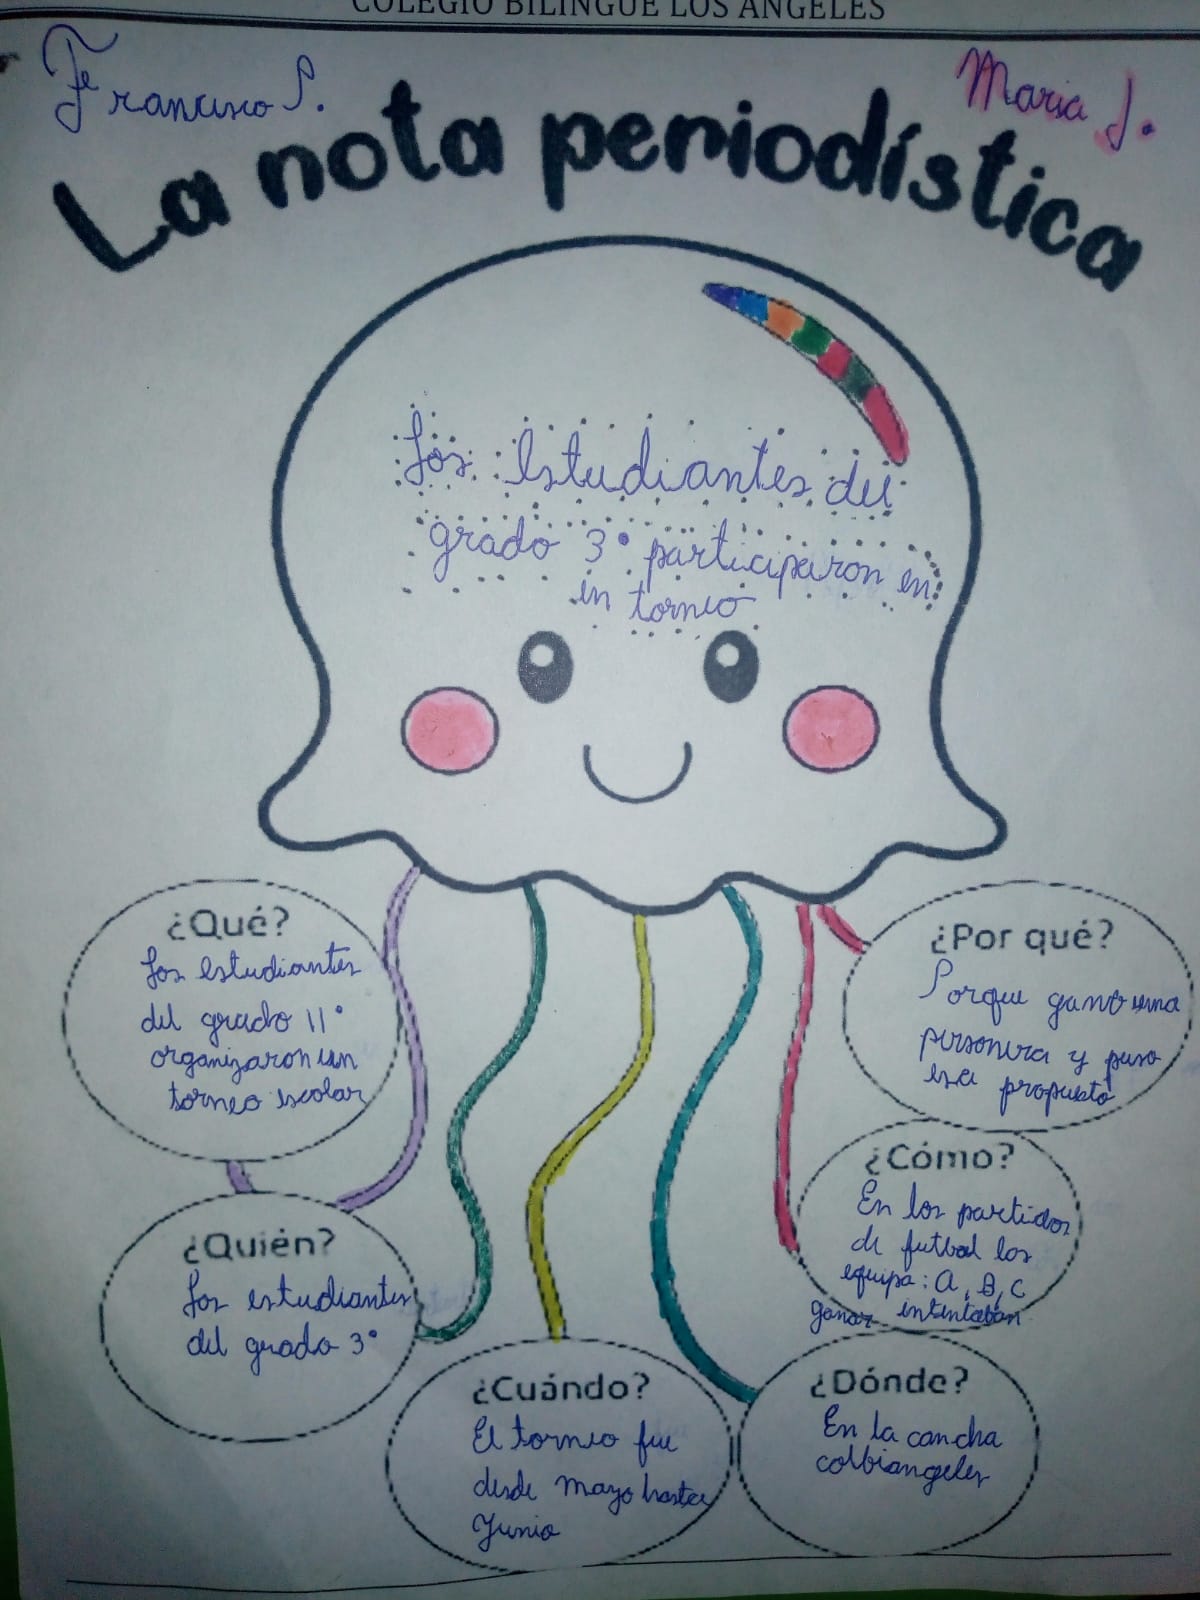 COLEGIO BILINGÜE LOS ÁNGELES
Francisco P.
Maria J.
La nota periodística
Los estudiantes del
grado 3° participaron en
un torneo
¿Qué?
Los estudiantes
del grado 11°
organizaron un
torneo escolar
¿Por qué?
Porque gano una
personera y puso
esa propuesta
¿Cómo?
En los partidos
de futbol los
equipa: A, B, C
ganar intentaban
¿Quién?
Los estudiantes
del grado 3°
¿Cuándo?
El torneo fue
desde mayo hasta
Junio
¿Dónde?
En la cancha
colbiangeles